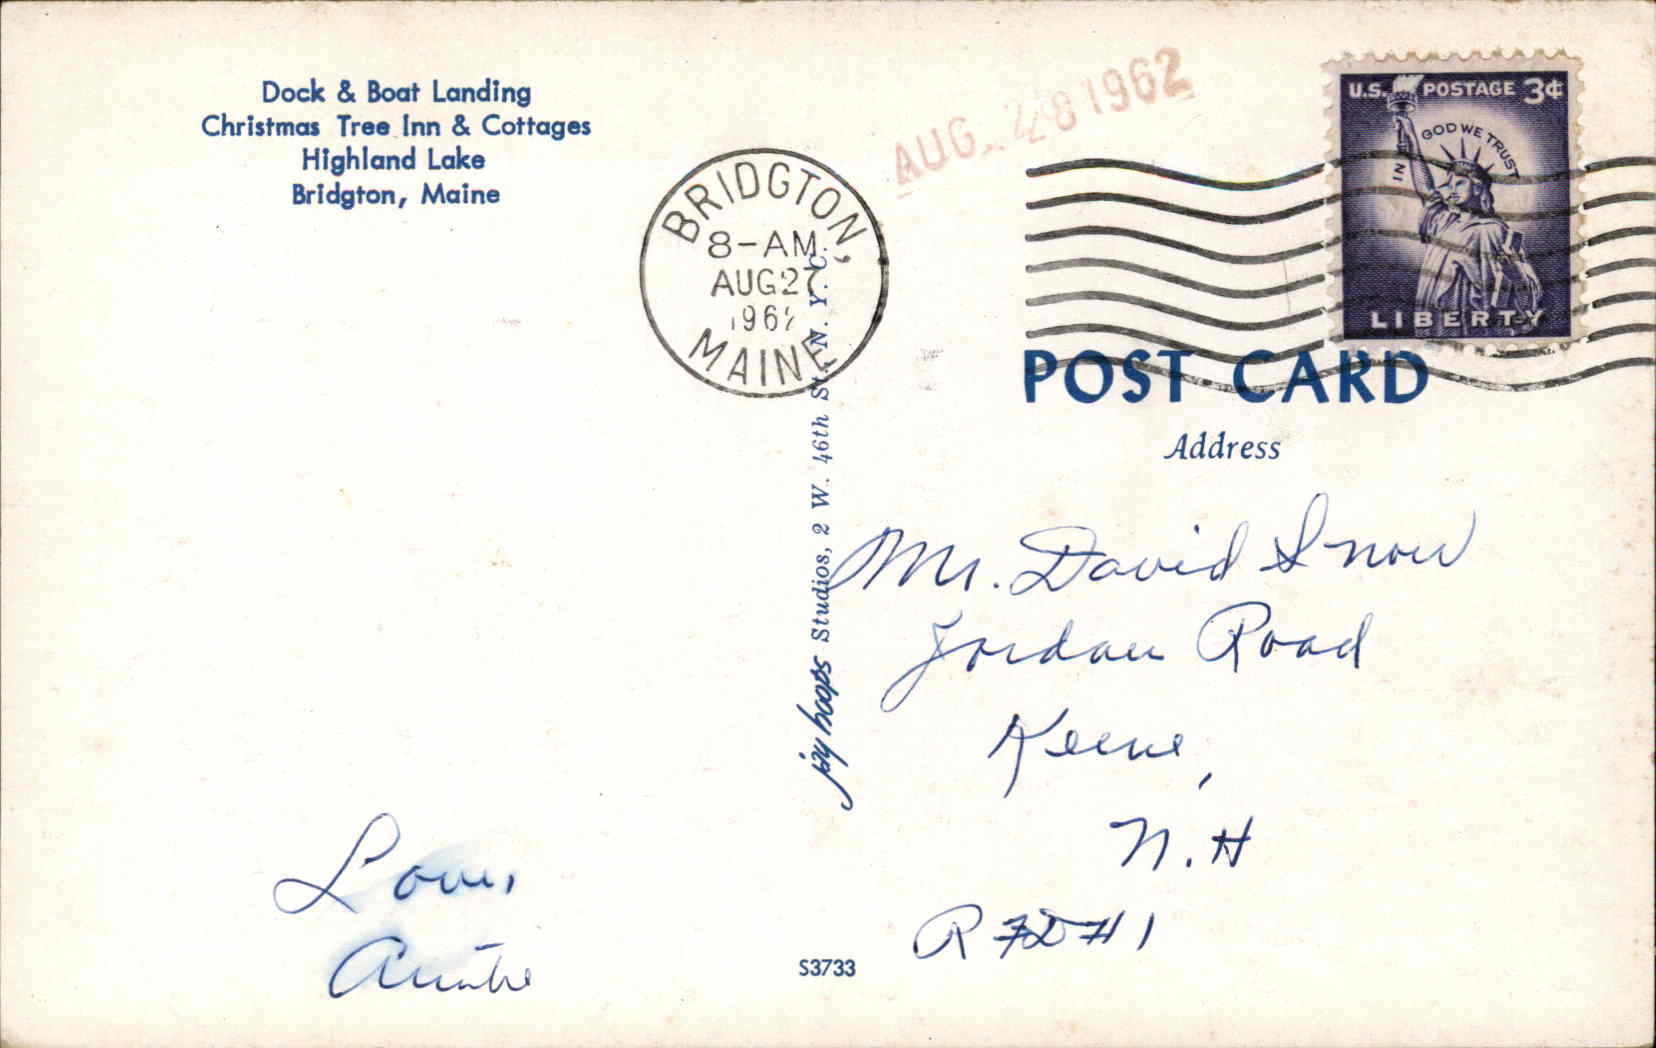 Dock & Boat Landing
Christmas Tree Inn & Cottages
Highland Lake
Bridgton, Maine
AUG. 28 1962
BRIDGTON,
8-AM
AUG 27
1962
MAINE
U.S. POSTAGE 3¢
IN GOD WE TRUST
LIBERTY
POST CARD
Address
Mr. David Snow
Jordan Road
Keene,
N.H
R F D # 1
Love,
Auntie
jay hoops Studios, 2 W. 46th St., N. Y. C.
S3733